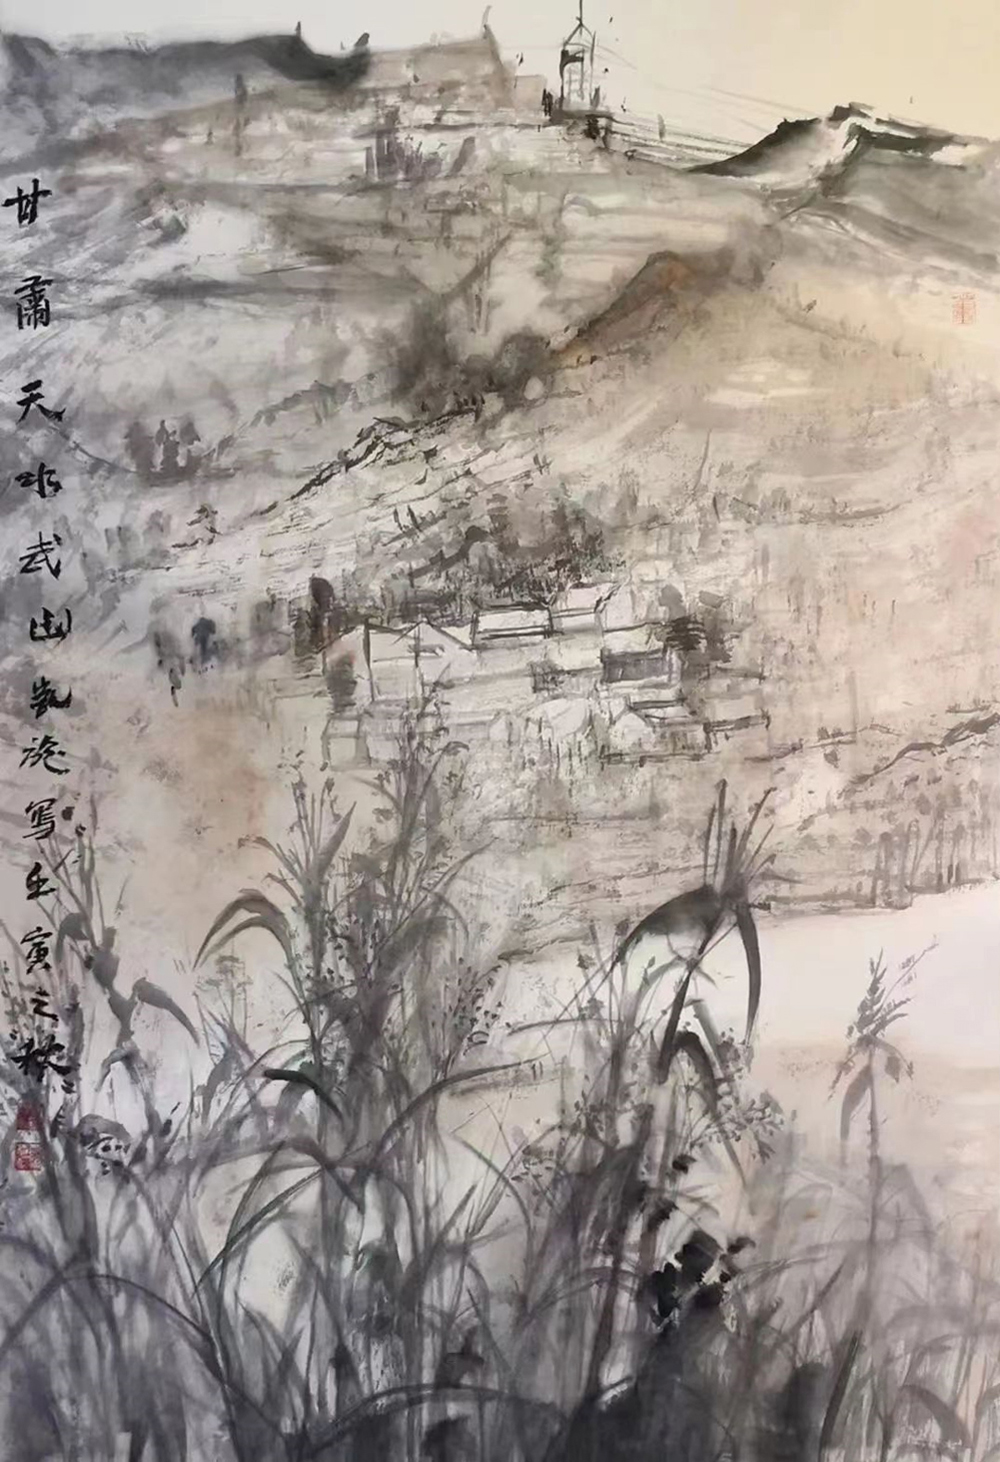 甘肃天水武山凯旋写壬寅之秋